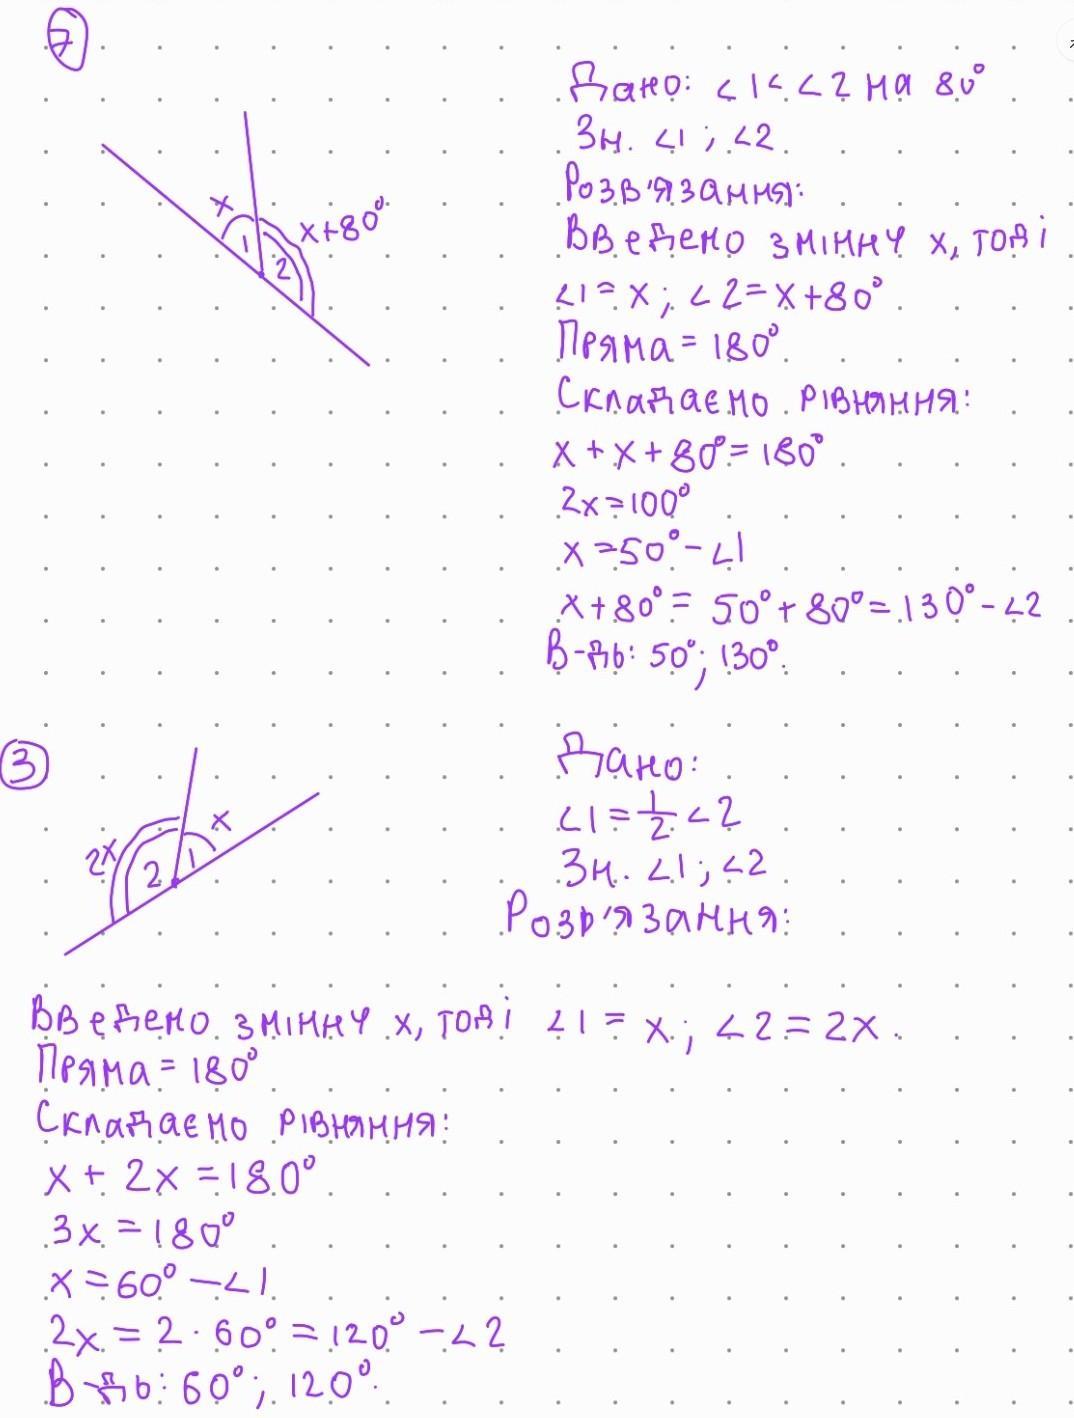 7
Дано: ∠1 < ∠2 на 80°
Зн. ∠1; ∠2
Розв'язання:
Введемо змінну x, тоді
∠1 = x; ∠2 = x+80°
Пряма = 180°
Складаємо рівняння:
x + x + 80° = 180°
2x = 100°
x = 50° - ∠1
x+80° = 50° + 80° = 130° - ∠2
В-дь: 50°; 130°.
x
x+80°
1
2
3
Дано:
∠1 = 1/2 ∠2
Зн. ∠1; ∠2
Розв'язання:
2x
x
2
1
Введемо змінну x, тоді ∠1 = x; ∠2 = 2x.
Пряма = 180°
Складаємо рівняння:
x + 2x = 180°
3x = 180°
x = 60° - ∠1
2x = 2 · 60° = 120° - ∠2
В-дь: 60°; 120°.